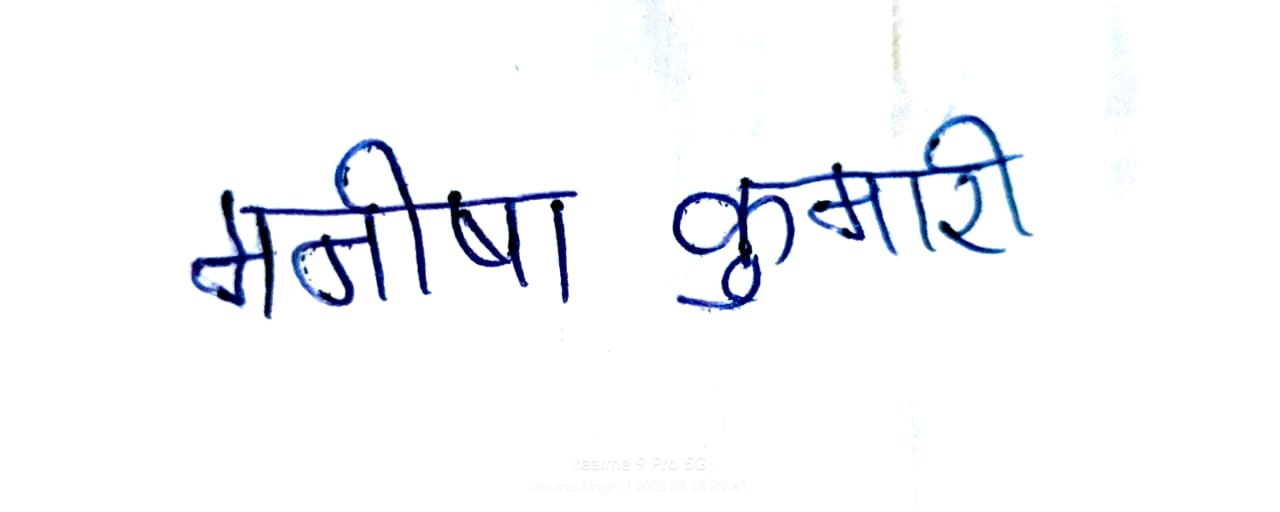 मनीषा कुमारी
realme 9 Pro 5G
Govind Singh | 2025.03.25 09:45